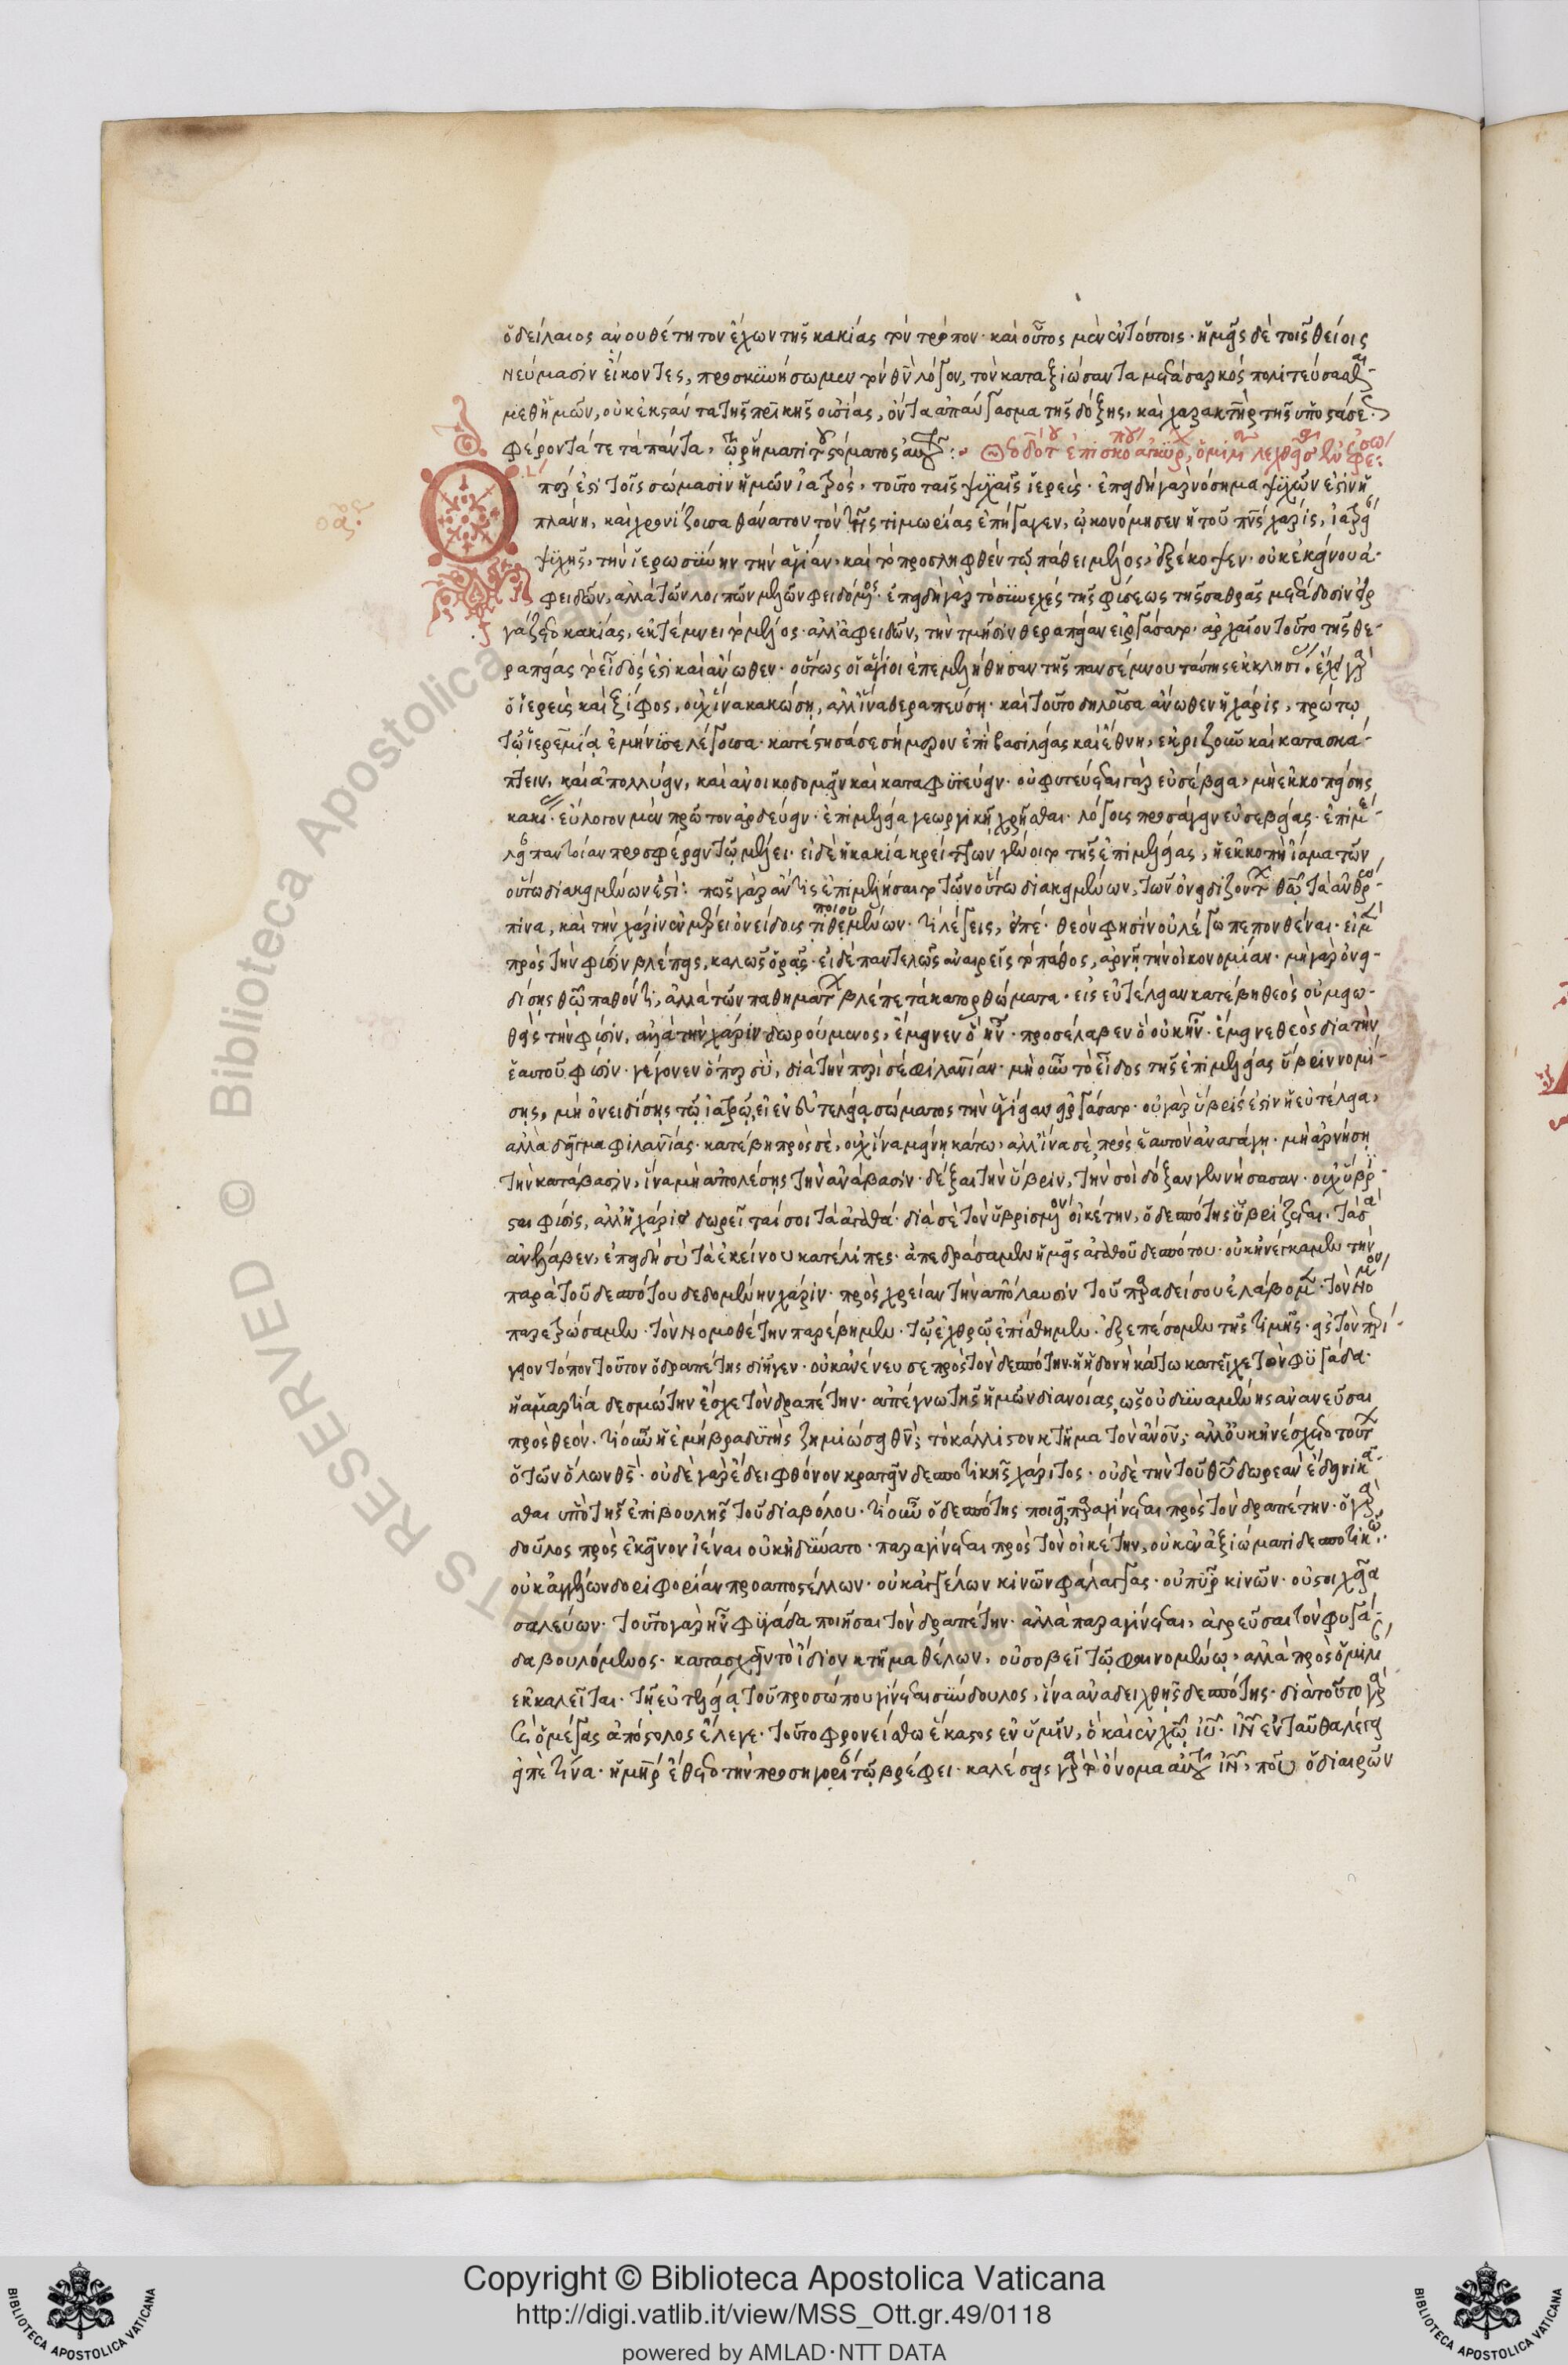 ὁ δείλαιος ἀνουθέτητον ἔχων τῆς κακίας τὸν τρόπον· καὶ οὗτος μὲν ἐν τούτοις· ἡμεῖς δὲ τοῖς θείοις
νεύμασιν εἴκοντες, προσκυνήσωμεν τὸν θυ λόγον, τὸν καταξιώσαντα μετὰ σαρκὸς πολιτεύσασθαι
μεθ' ἡμῶν, οὐκ ἐκστάντα τῆς πρικῆς οὐσίας, ὄντα ἀπαύγασμα τῆς δόξης, καὶ χαρακτὴρ τῆς ὑποστάσε
φέροντά τε τὰ πάντα, τῷ ῥήματι τοῦ στόματος αὐτοῦ :
Ὅπερ ἐστὶ τοῖς σώμασιν ἡμῶν ἰατρός, τοῦτο ταῖς ψυχαῖς ἱερεύς· ἐπειδὴ γὰρ νόσημα ψυχῶν ἐστιν ἡ
πλάνη, καὶ χρονίζουσα θάνατον τὸν τῆς τιμωρίας ἐπήγαγεν, ᾠκονόμησεν ἡ τοῦ πνς χάρις, ἰατρεῖ
ψυχῆς, τὴν ἱερωσύνην τὴν ἁγίαν, καὶ τὸ προσληφθὲν τῷ πάθει μέλος, ἐξέκοψεν· οὐκ ἐκείνου ἀ-
φειδῶν, ἀλλὰ τῶν λοιπῶν μελῶν φειδόμενος· ἐπειδὴ γὰρ τὸ συνεχὲς τῆς φύσεως τῆς σαθρᾶς μετάδοσιν ἐρ
γάζεται κακίας, ἐκτέμνει τὸ μέλος· ἀλλ' ἀφειδῶν, τὴν τμῆσιν θεραπείαν εἰργάσατο· ἀρχαῖον τοῦτο τῆς θε-
ραπείας τὸ εἶδός ἐστι καὶ ἄνωθεν· οὕτως οἱ ἅγιοι ἐπεμελήθησαν τῆς πανσέμνου ταύτης ἐκκλησίας· ἔχει γὰρ
ὁ ἱερεὺς καὶ ξίφος, οὐχ ἵνα κακώσῃ, ἀλλ' ἵνα θεραπεύσῃ· καὶ τοῦτο δηλοῦσα ἄνωθεν ἡ χάρις, πρώτῳ
τῷ ἱερεμίᾳ ἐμήνυσε λέγουσα· κατέστησά σε σήμερον ἐπὶ βασιλείας καὶ ἔθνη, ἐκριζοῦν καὶ κατασκά-
πτειν, καὶ ἀπολλύειν, καὶ ἀνοικοδομεῖν καὶ καταφυτεύειν· οὐ φυτεύεται γὰρ εὐσέβεια, μὴ ἐκκοπείσης
κακίας· εὔλογον μὲν πρῶτον ἀρδεύειν· ἐπιμελείᾳ γεωργικῇ χρῆσθαι· λόγοις προσάγειν εὐσεβείας· ἐπιμέ-
λειαν παντοίαν προσφέρειν τῷ μέλει· εἰ δὲ ἡ κακία κρείττων γένοιτο τῆς ἐπιμελείας, ἡ ἐκκοπὴ ἴαμα τῶν
οὕτω διακειμένων ἐστί· πῶς γὰρ ἄν τις ἐπιμελήσαιτο τῶν οὕτω διακειμένων, τῶν ὀνειδιζόντων θῷ τὰ ἀνθρώ-
πινα, καὶ τὴν χάριν ἐν μέρει ὀνείδους ποιουτιθεμένων· τί λέγεις, εἰπέ· θεόν φησιν οὐ λέγω πεπονθέναι· εἰ μὲν
πρὸς τὴν φύσιν βλέπεις, καλῶς ὁρᾷς· εἰ δὲ παντελῶς ἀναιρεῖς τὸ πάθος, ἀρνῇ τὴν οἰκονομίαν· μὴ γὰρ ὀνει-
δίσῃς θῷ παθόντι, ἀλλὰ τῶν παθημάτων βλέπε τὰ κατορθώματα· εἰς εὐτέλειαν κατέβη θεὸς οὐ μειω-
θεὶς τὴν φύσιν, ἀλλὰ τὴν χάριν δωρούμενος, ἔμεινεν ὃ ἦν· προσέλαβεν ὃ οὐκ ἦν· ἔμεινε θεὸς διὰ τὴν
ἑαυτοῦ φύσιν· γέγονεν ὅπερ σύ, διὰ τὴν περὶ σὲ φιλανίαν· μὴ οὖν τὸ εἶδος τῆς ἐπιμελείας ὕβριν νομί-
σῃς, μὴ ὀνειδίσῃς τῷ ἰατρῷ, εἰ ἐν εὐτελείᾳ σώματος τὴν ὑγίειαν εἰργάσατο· οὐ γὰρ ὕβρις ἐστὶν ἡ εὐτέλεια,
ἀλλὰ δεῖγμα φιλανίας· κατέβη πρὸς σέ, οὐχ ἵνα μείνῃ κάτω, ἀλλ' ἵνα σὲ πρὸς ἑαυτὸν ἀναγάγῃ· μὴ ἀρνήσῃ
τὴν κατάβασιν, ἵνα μὴ ἀπολέσῃς τὴν ἀνάβασιν· δέξαι τὴν ὕβριν, τὴν σοὶ δόξαν γεννήσασαν· οὐχ ὕβρι-
σται φύσις, ἀλλ' ἡ χάρις δωρεῖταί σοι τὰ ἀγαθά· διὰ σὲ τὸν ὑβρισμένον οἰκέτην, ὁ δεσπότης ὑβρίζεται· τὰ σὰ
ἀνέλαβεν, ἐπειδὴ σὺ τὰ ἐκείνου κατέλιπες· ἀπεδράσαμεν ἡμεῖς ἀγαθοῦ δεσπότου· οὐκ ἠνέγκαμεν τὴν
παρὰ τοῦ δεσπότου δεδομένην χάριν· πρὸς χρείαν τὴν ἀπόλαυσιν τοῦ παραδείσου ἐλάβομεν· τὸν νόμον
παρεξώσαμεν· τὸν νομοθέτην παρέβημεν· τῷ ἐχθρῷ ἐπείσθημεν· ἐξεπέσομεν τῆς τιμῆς· εἰς τὸν περί-
γειον τόπον τοῦτον ὁ δραπέτης διῆγεν· οὐκ ἀνένευσε πρὸς τὸν δεσπότην· ἡ ἡδονὴ κάτω κατεῖχε τὸν φυγάδα·
ἡ ἁμαρτία δεσμώτην ἔσχε τὸν δραπέτην· ἀπέγνω τῆς ἡμῶν διανοίας, ὡς οὐ δυναμένης ἀνανεῦσαι
πρὸς θεόν· τί οὖν ἡ ἐμὴ βραδυτὴς ζημιώσει θν; τὸ κάλλιστον κτῆμα τὸν ἀνον; ἀλλ' οὐκ ἠνέσχετο τοῦτο
ὁ τῶν ὅλων θς· οὐδὲ γὰρ ἔδει φθόνον κρατεῖν δεσποτικῆς χάριτος· οὐδὲ τὴν τοῦ θυ δωρεὰν ἔδει νικᾶ-
σθαι ὑπὸ τῆς ἐπιβουλῆς τοῦ διαβόλου· τί οὖν ὁ δεσπότης ποιεῖ, παραγίνεται πρὸς τὸν δραπέτην· ὁ γὰρ
δοῦλος πρὸς ἐκεῖνον ἰέναι οὐκ ἠδύνατο· παραγίνεται πρὸς τὸν οἰκέτην, οὐκ ἐν ἀξιώματι δεσποτικῷ·
οὐκ ἀγγέλων δορυφορίαν προαποστέλλων· οὐκ ἀγγέλων κινῶν φάλαγγας· οὐ πῦρ κινῶν· οὐ στοιχεῖα
σαλεύων· τοῦτο γὰρ ἦν φυγάδα ποιῆσαι τὸν δραπέτην· ἀλλὰ παραγίνεται, ἀγρεῦσαι τὸν φυγά-
δα βουλόμενος· κατασχεῖν τὸ ἴδιον κτῆμα θέλων, οὐ σοβεῖ τῷ φαινομένῳ, ἀλλὰ πρὸς ὁμιλί
ἐκκαλεῖται· τῇ εὐτελείᾳ τοῦ προσώπου γίνεται σύνδουλος, ἵνα ἀναδειχθῇς δεσπότης· διὰ τοῦτο γὰρ
καὶ ὁ μέγας ἀπόστολος ἔλεγε· τοῦτο φρονείσθω ἕκαστος ἐν ὑμῖν, ὃ καὶ ἐν χῷ ιυ· ιν ἐνταῦθα λέγει
εἰπὲ τίνα· ἡ μηρ ἔθετο τὴν προσηγορίαν τῷ βρέφει· καλέσεις γὰρ τὸ ὄνομα αὐτοῦ ιν, ποῦ ὁ διαιρῶν
Copyright © Biblioteca Apostolica Vaticana
http://digi.vatlib.it/view/MSS_Ott.gr.49/0118
powered by AMLAD·NTT DATA
BIBLIOTECA APOSTOLICA VATICANA
BIBLIOTECA APOSTOLICA VATICANA
Biblioteca Apostolica Vaticana
©
RIGHTS RESERVED